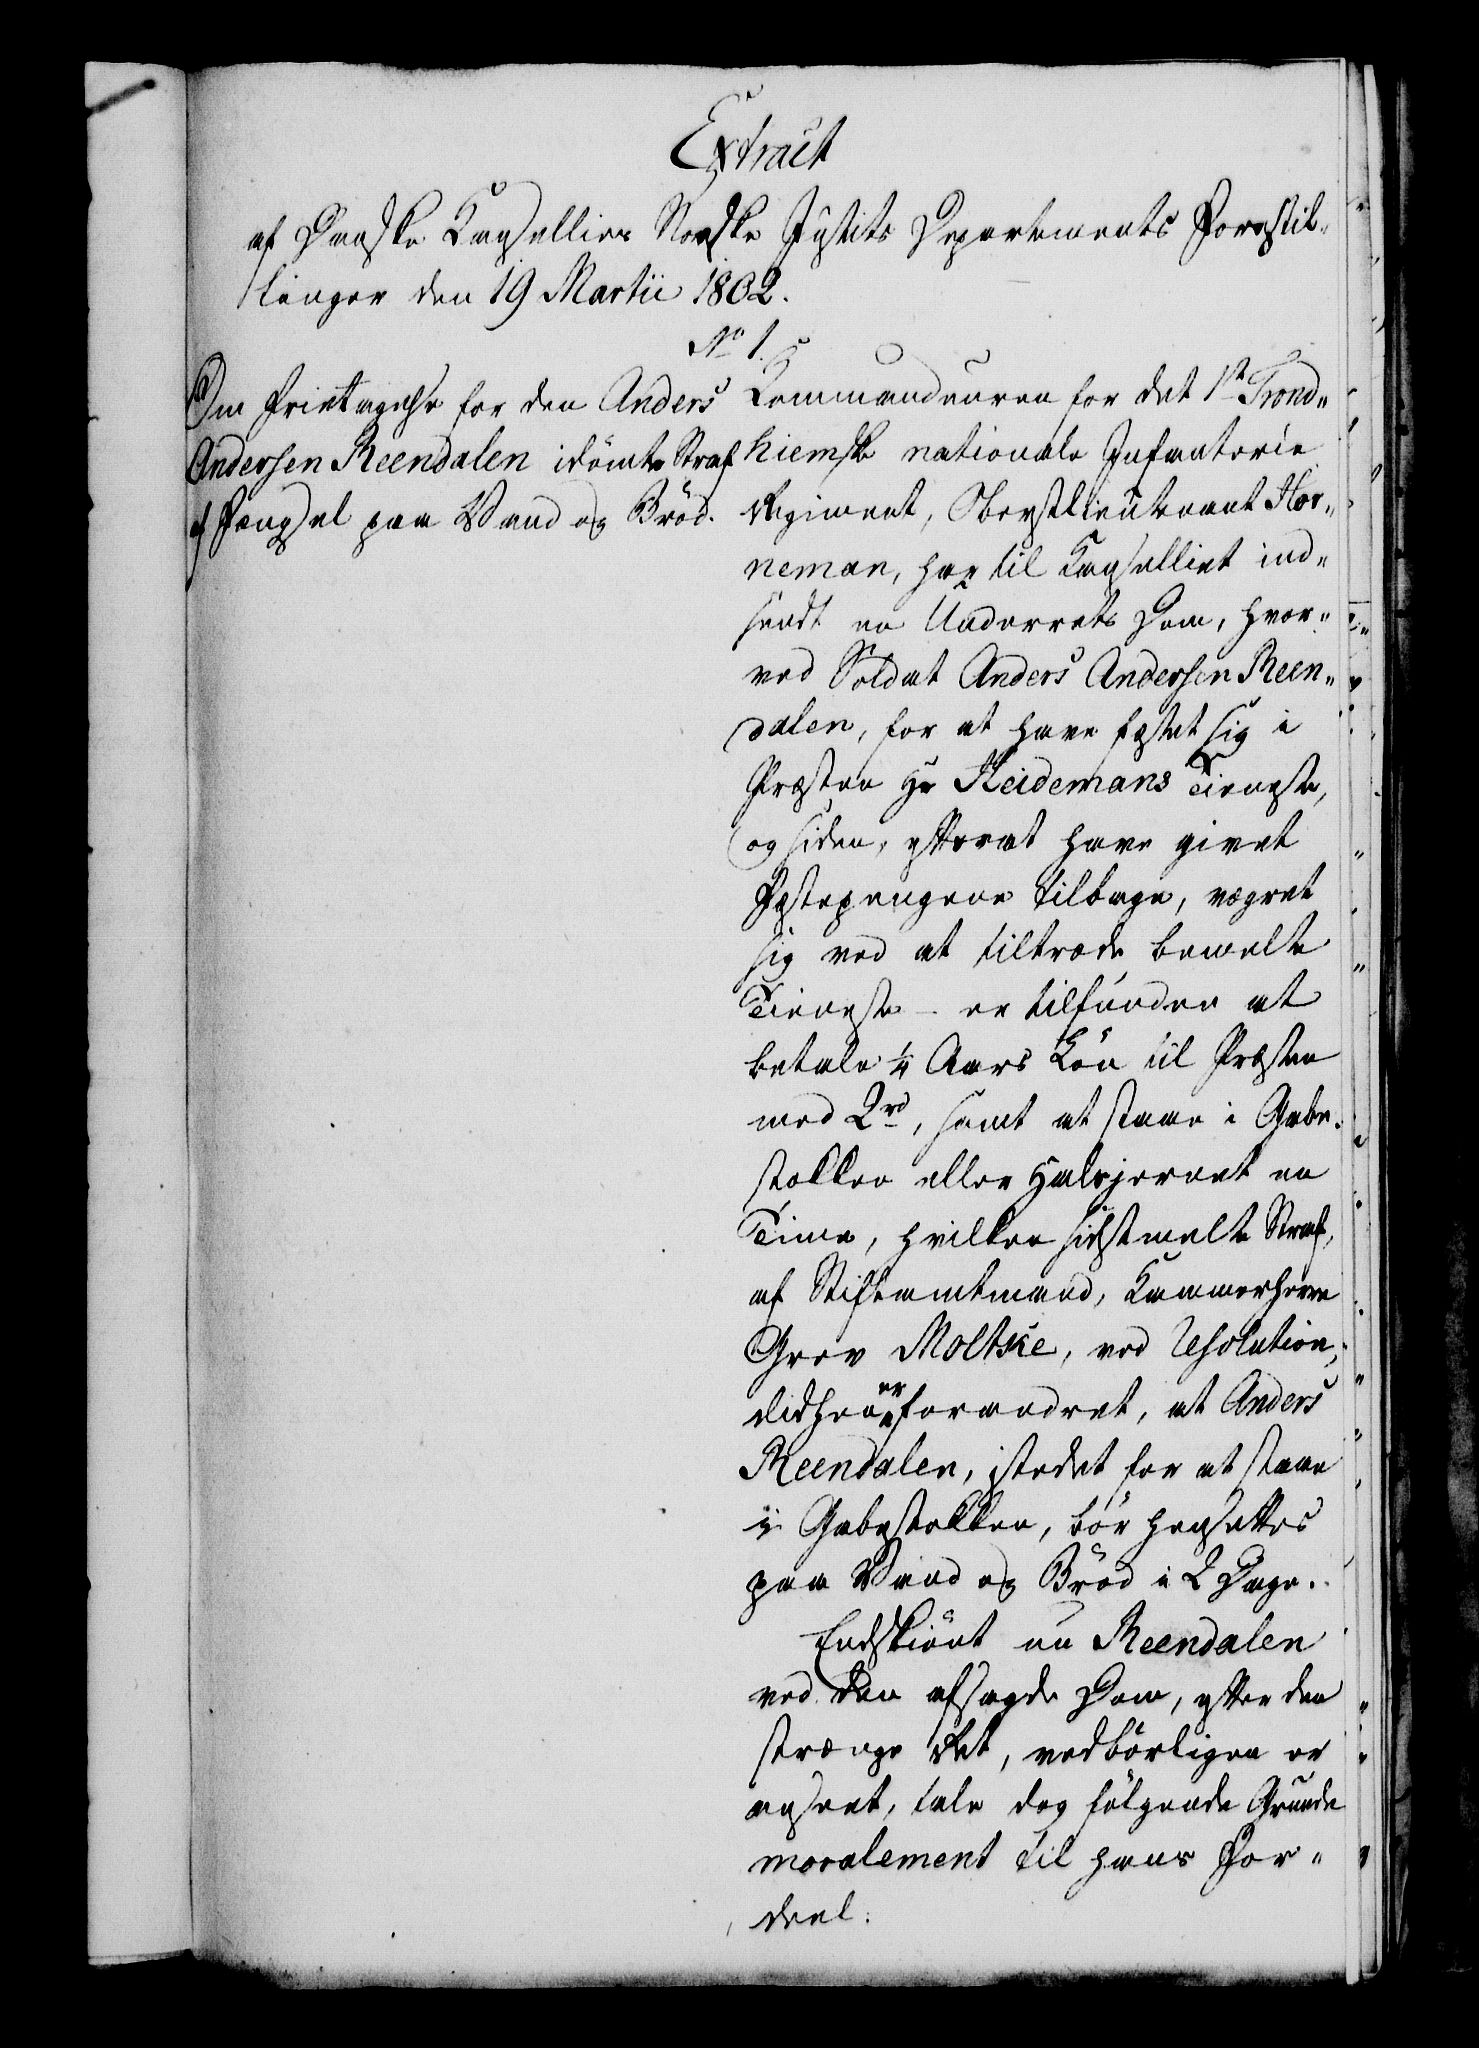 Extract
af Danske Kancelliets Norske Justits Departements Forestil-
linger den 19 Martii 1802.
No 1.
Om Fritagelse for den Anders
Andersen Reendalen idömte Straf
af Fængsel paa Vand og Bröd.
Kommandeuren for det 1ste Trond-
hiemske nationale Infanterie
Regiment, Oberstlieutenant Hor-
neman, har til Kancelliet ind-
sendt en Underrets Dom, hvor-
ved Soldat Anders Andersen Reen-
dalen, for at have fæstet sig i
Præsten Hr Heidemans Tieneste,
og siden, efterat have givet
Fæstepengene tilbage, vægret
sig ved at tiltræde bemelte
Tieneste - er tilfunden at
betale 1/4 Aars Lön til Præsten
med 2rd, samt at staae i Gabe-
stokken eller Halsjernet en
Time, hvilken sidstmelte Straf,
af Stiftamtmand, Kammerherre
Grev Moltke, ved Resolution,
didhen er forandret, at Anders
Reendalen, istedet for at staae
i Gabestokken, bör hensættes
paa Vand og Bröd i 2 Dage.
Endskiönt nu Reendalen
ved den afsagde Dom, efter den
strænge Ret, vedbörligen er
anseet, tale dog fölgende Grunde
moralement til hans For-
deel: